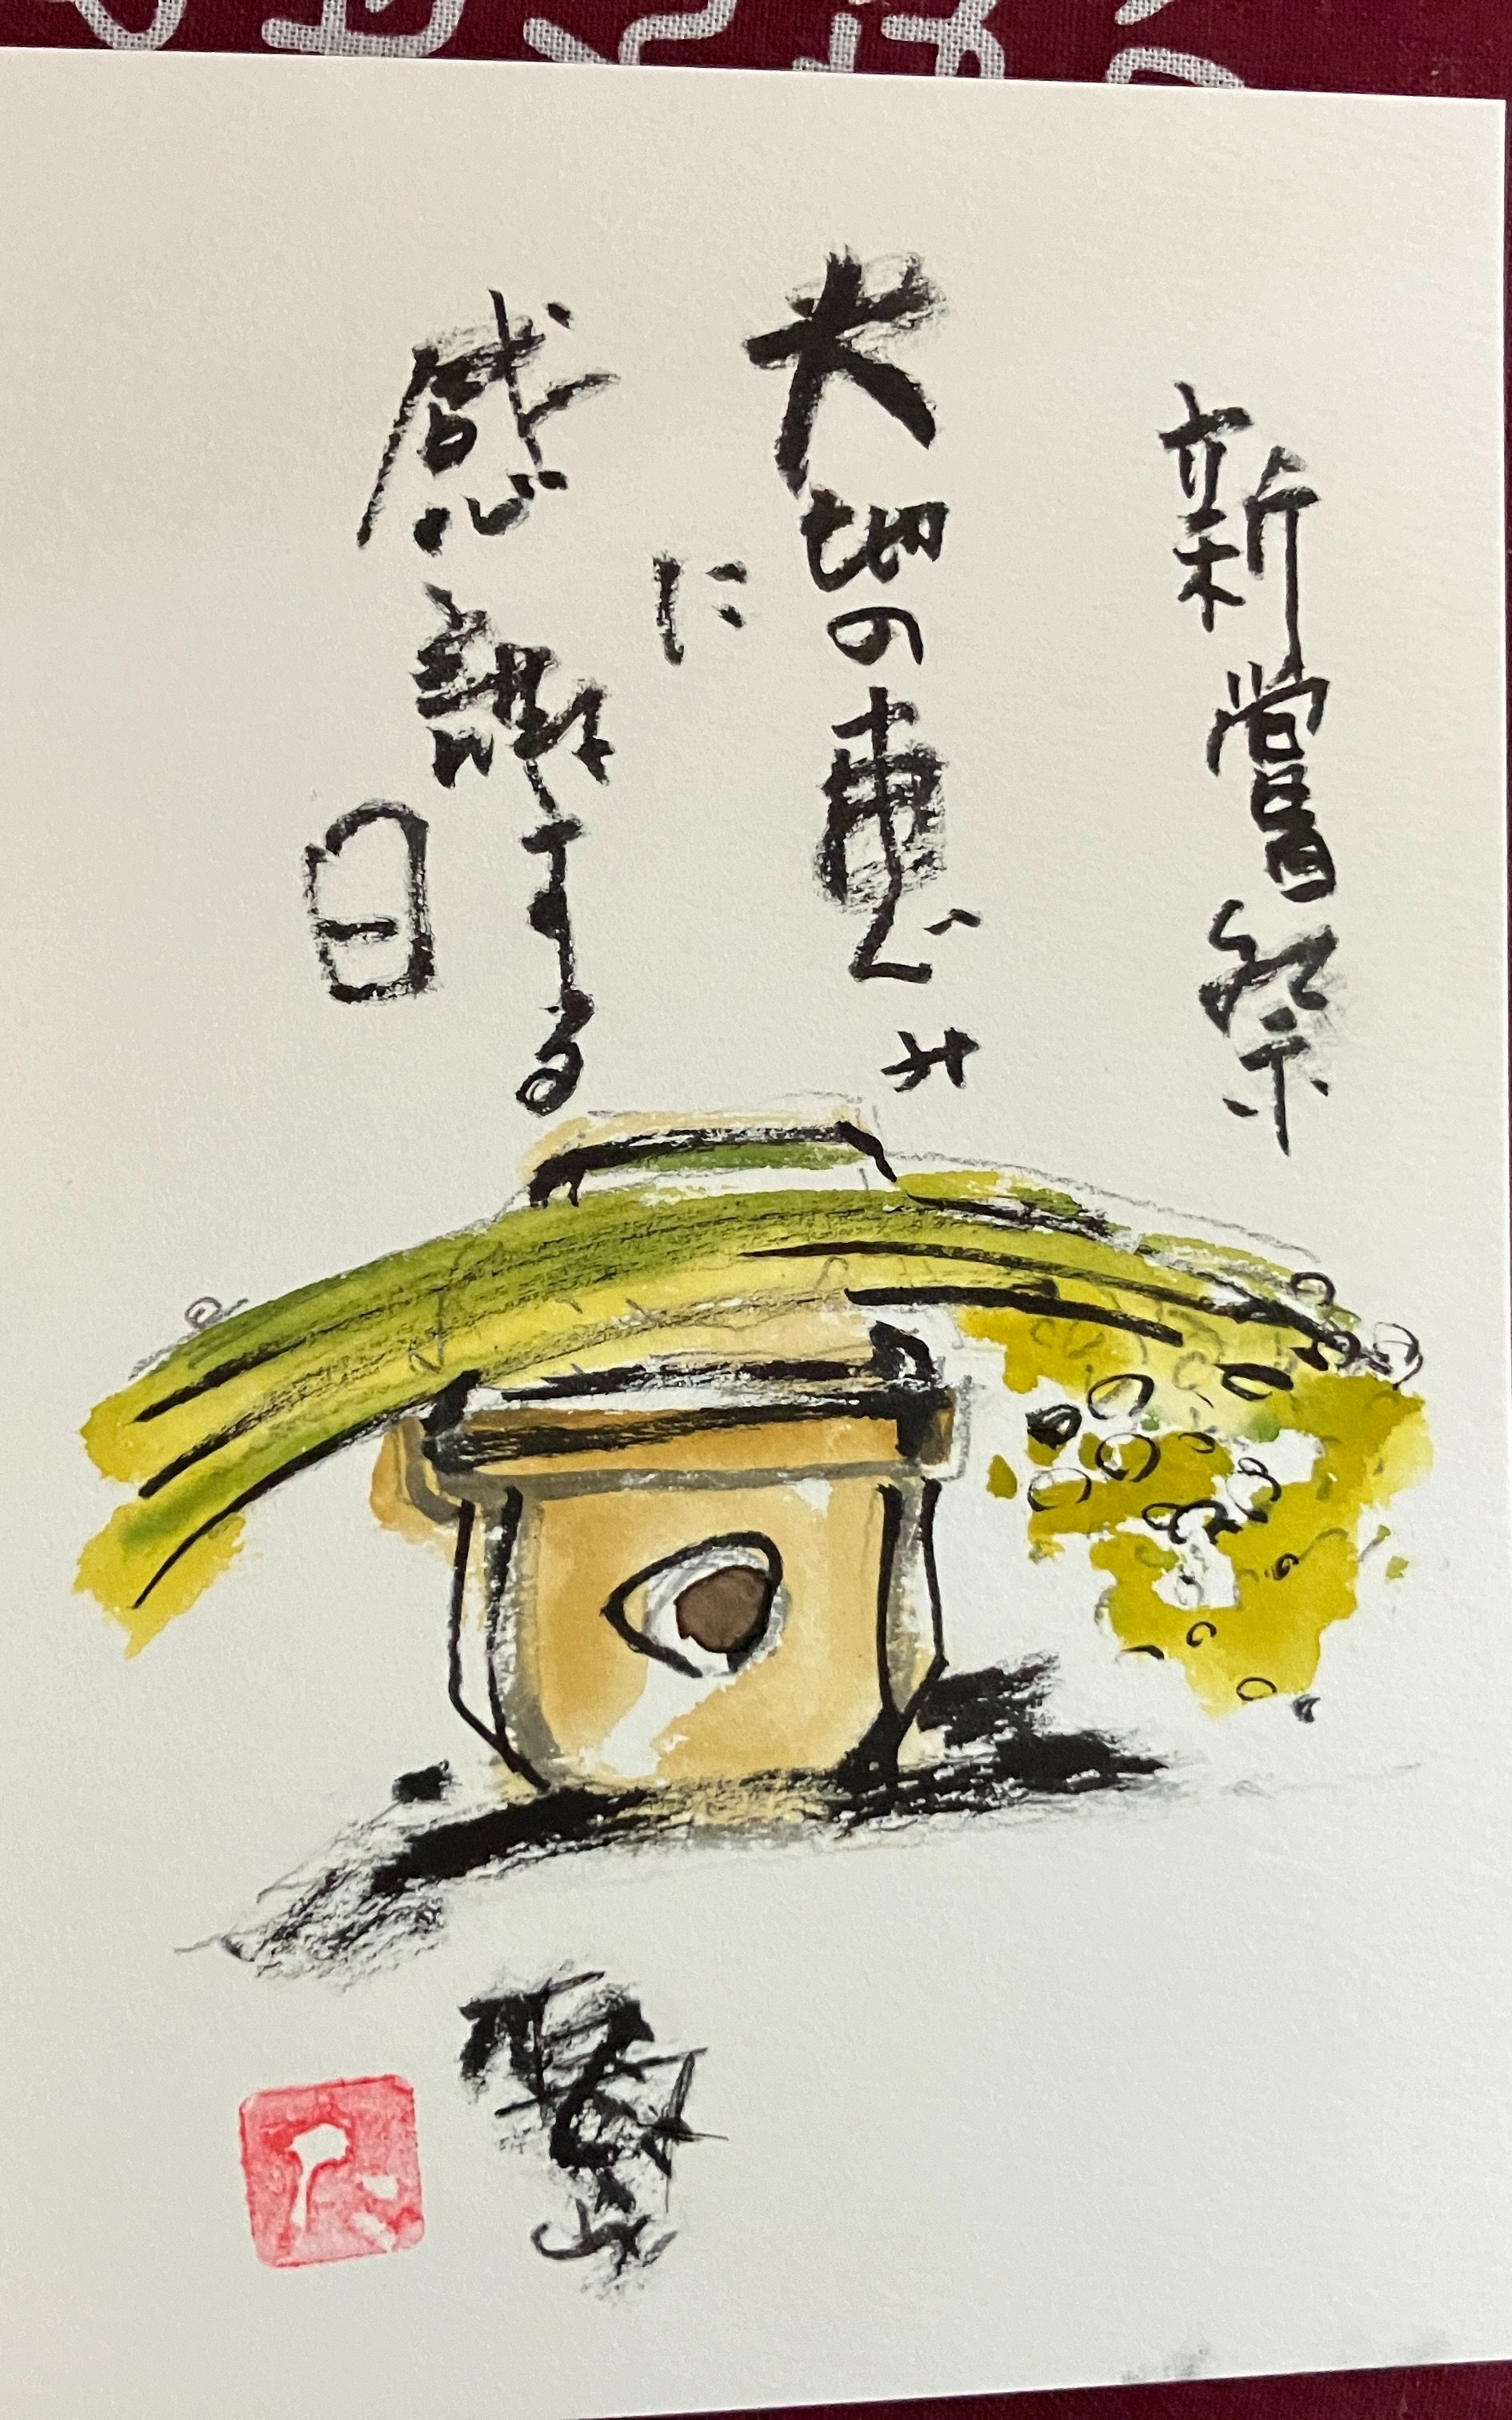 新嘗祭
大地の恵み
に
感謝する
日